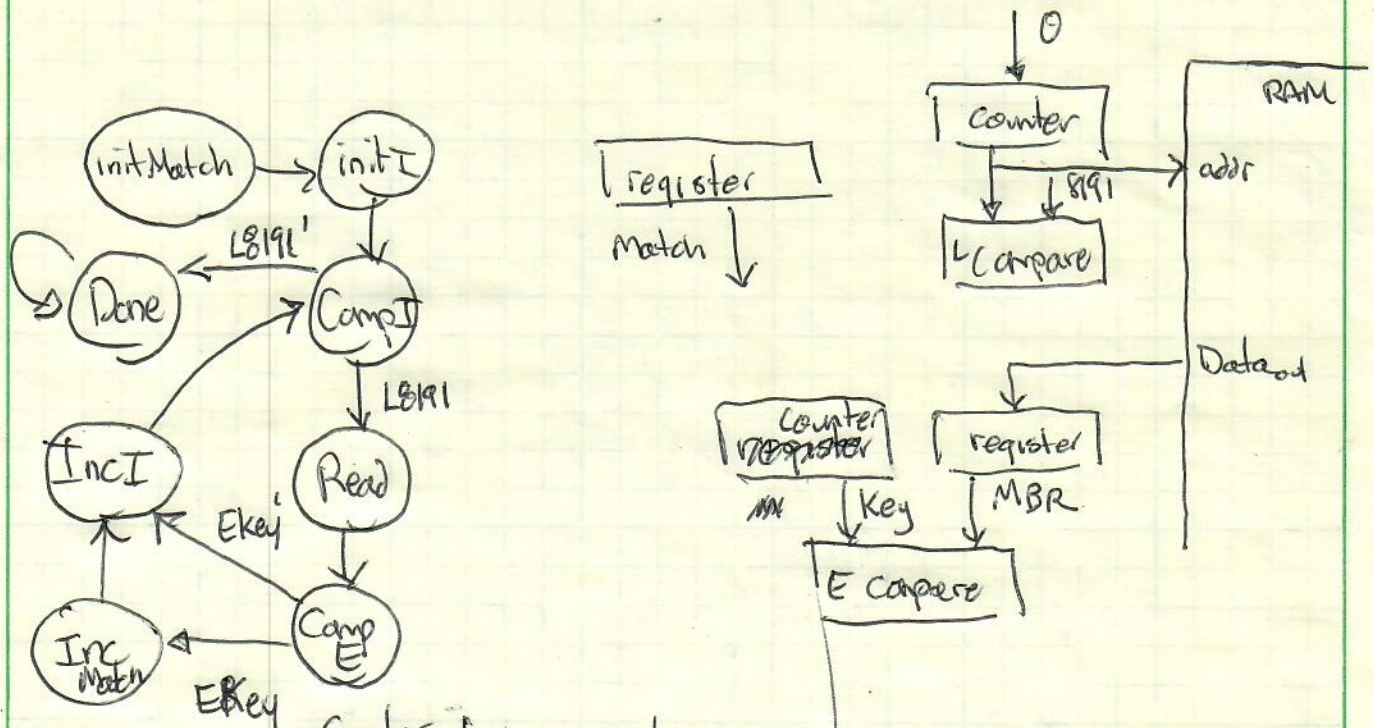 initMatch
initI
L8191'
Done
CompI
L8191
IncI
Read
Ekey'
Comp
E
Inc
Match
EKey
register
Match
0
counter
8191
L Compare
RAM
addr
Dataout
counter
register
Key
register
MBR
E Compare